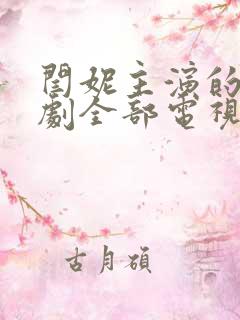 閨妮主演的
劇全部電視
古月碩